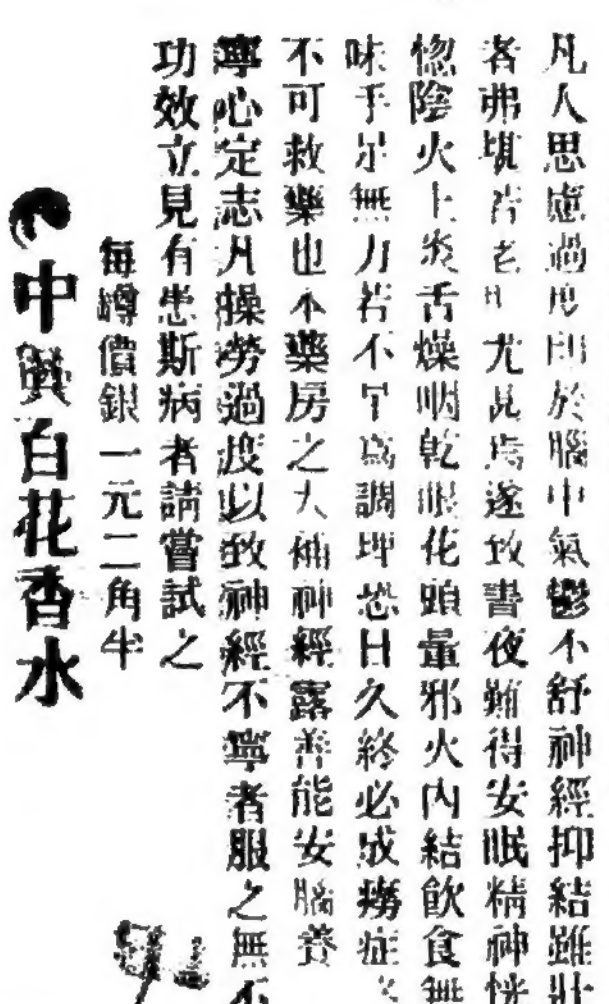 凡人思慮過度即於腦中氣鬱不舒神經抑結雖壯
者弗堪若老尤甚焉遂致晝夜難得安眠精神恍
惚陰火上炎舌燥咽乾眼花頭暈邪火內結飲食無
味手足無力若不早為調理恐日久終必成癆症
不可救藥也本藥房之大補神經露善能安腦養
寧心定志凡操勞過度以致神經不寧者服之無不
功效立見有患斯病者請嘗試之
每罇價銀一元二角半
中興白花香水